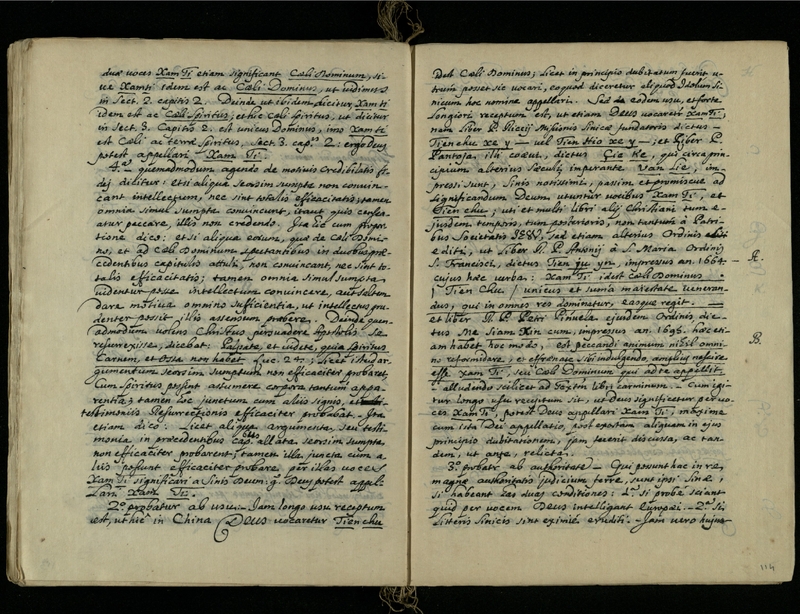 duæ voces Xam Ti etiam significant Cœli Dominum, si-
ve Xamti idem est ac Cœli Dominus, ut vidimus
in Sect. 2. capitis 2. Deinde ut ibidem dicitur, Xamti
idem est ac Cœli Spiritus; et hic Cœli spiritus, ut dicitur
in Sect. 3. Capitis 2. est unicus Dominus, imo Xamti
est Cœli ac terræ Spiritus, Sect. 3. cap. 2: ergo Deus
potest appellari Xam Ti.
4.a quemadmodum agendo de motivis Credibilitatis fi-
dej dicitur: etsi aliqua seorsim sumpta non convin-
cant intellectum, nec sint totalis efficacitatis; tamen
omnia simul sumpta convincunt, itaut quis censea-
atur peccare, illis non credendo. Ita hic cum propor-
tione dico: etsi aliqua eorum, quæ de Cœli Domi-
no, et ad Cœli Dominum spectantibus in duobus præ-
cedentibus capitulis attuli, non convincant, nec sint to-
talis efficacitatis; tamen omnia simul sumpta
videntur posse intellectum convincere, aut saltem
dare motiva omnino sufficientia, ut intellectus pru-
denter possit illis assensum præbere. Deinde quem-
admodum volens Christus persuadere Apostolis Se
resurrexisse, dicebat: Palpate, et videte, quia Spiritus
Carnem et Ossa non habet Luc. 24.; licet istud ar-
gumentum seorsim sumptum non efficaciter probaret,
Cum Spiritus possint assumere corpora tantum appa-
rentia; tamen hoc junctum cum aliis signis, et
testimoniis Resurrectionis efficaciter probabat. Ita
etiam dico: Licet aliqua argumenta, seu testi-
monia in præcedentibus cap. allata seorsim sumpta
non efficaciter probarent; tamen illa juncta cum a-
liis possunt efficaciter probare per illas voces
Xam Ti significari a Sinis Deum: g. Deus potest appel-
lari Xam Ti.
2.o probatur ab usu. Jam longo usu receptum
est, ut hic in China Deus vocaretur Tienchu
idest Cœli Dominus; licet in principio dubitatum fuerit u-
trum posset sic vocari, eo quod diceretur aliquod Idolum Si-
nicum hoc nomine appellari. Sed de eodem usu, et forte
longiori receptum est, ut etiam Deus vocaretur Xam Ti;
nam liber P. Riccij Missionis Sinicæ fundatoris dictus
Tienchu xe y vel Tien Hio xe y; et liber P.
Pantoja, illi coævi, dictus Çie Ke, qui circa prin-
cipium alterius sæculi, imperante Van Lie, im-
pressi sunt, Sinis notissimi, passim et promiscue ad
significandum Deum utuntur vocibus Xam Ti, et
Tien chu; uti et multi libri alij Christiani tum e-
jusdem temporis, tum posterioris, non tantum à Patri-
bus Societatis JESU, sed etiam alterius Ordinis
editi, ut liber R. P. Antonij à S. Maria Ordinis
S. Francisci, dictus Tien ju yn, impressus an. 1664.
cujus hæc verba: Xam Ti idest Cœli Dominus
/ Tien Chu / unicus et summa maiestate veneran-
dus, qui in omnes res dominatur, easque regit.
et liber R. P. Petri Pinuela ejusdem Ordinis dic-
tus Me Siam Xin cum, impressus an. 1695. hoc eti-
am habet hoc modo, est peccandi animum nihil omni-
no reformidare, et effrænate sibi indulgendo, amplius nescire
esse Xam Ti, seu Cœli Dominum qui ad te appellit.
alludendo scilicet ad textum libri carminum. Cum igi-
tur longo usu receptum sit, ut Deus significetur per vo-
ces Xam Ti, potest Deus appellari Xam Ti, maxime
cum ista Dei appellatio, post exortam aliquam in ejus
principio dubitationem, jam fuerit discussa, ac tan-
dem, ut ante, relicta.
3.o probatr ab authoritate. Qui possunt hac in re,
magnæ authoritatis judicium ferre, sunt ipsi Sinæ,
si habeant has duas conditiones: 1.a si probe sciant
quid per vocem Deus intelligant Europæi. 2.a Si
litteris sinicis sint eximie eruditi. Jam vero hujus
A.
B.
114